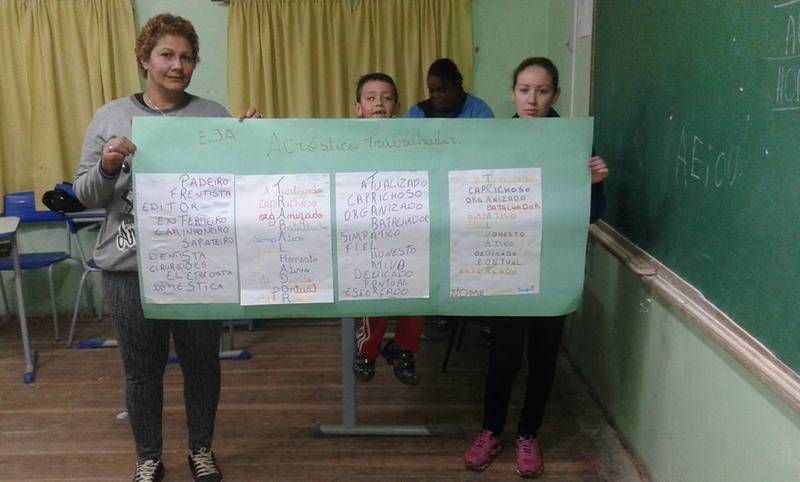 EJA
Acróstico Trabalhador.
PADEIRO
FRENTISTA
EDITOR
ENFERMEIRO
CAMINHONEIRO
SAPATEIRO
DENTISTA
CIRURGIÕES
ELETROSTA
DOMÉSTICA
ATualizado
CapRichoso
orgAnizado
Batalhador
SimpÁtico
fieL
Honesto
Ativo
deDicado
pOntual
ATUALIZADO
CAPRICHOSO
ORGANIZADO
BATALHADOR
SIMPÁTICO
FIEL
HONESTO
DEDICADO
PONTUAL
ESFORÇADO
ATUALIZADO
CAPRICHOSO
ORGANIZADO
BATALHADOR
SIMPATICO
FIEL
HONESTO
ATIVO
PONTUAL
ESFORÇADO
NOME
A
HO
AEiOU